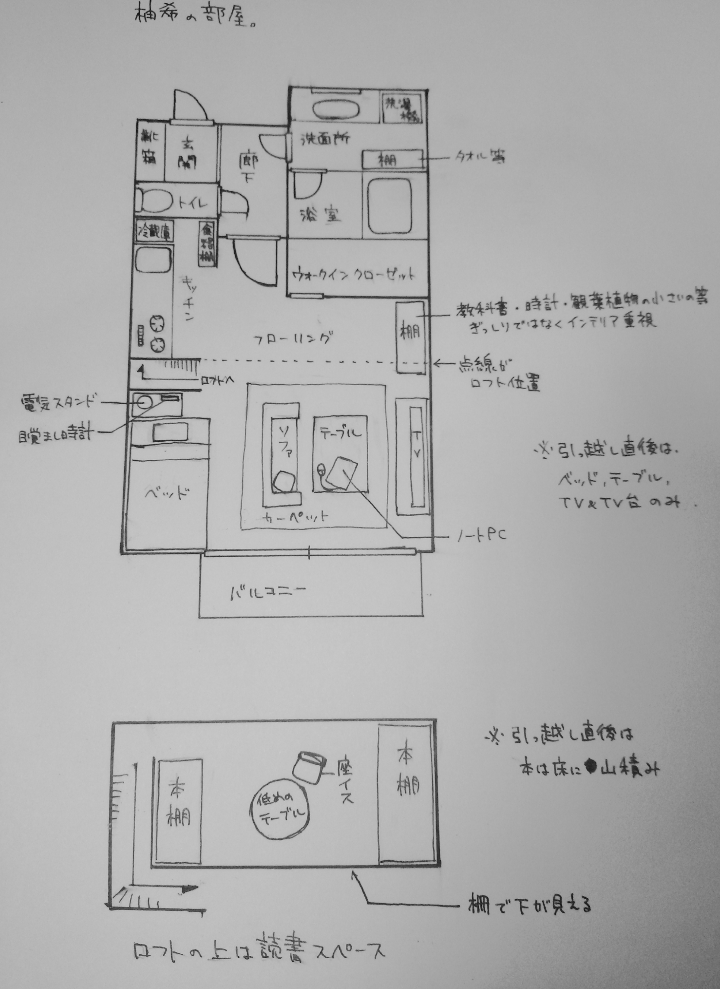 柚希の部屋。
洗濯機
靴箱
玄関
廊下
洗面所
棚
タオル等
トイレ
浴室
冷蔵庫
食器棚
キッチン
ウォークインクローゼット
フローリング
棚
教科書・時計・観葉植物の小さいの等
ぎっしりではなくインテリア重視
点線が
ロフト位置
ロフトへ
電気スタンド
目覚まし時計
ソファ
テーブル
TV
ベッド
カーペット
ノートPC
※引っ越し直後は、
ベッド,テーブル,
TV&TV台のみ.
バルコニー
※引っ越し直後は
本は床に山積み
本棚
座イス
低めの
テーブル
本棚
棚で下が見える
ロフトの上は読書スペース